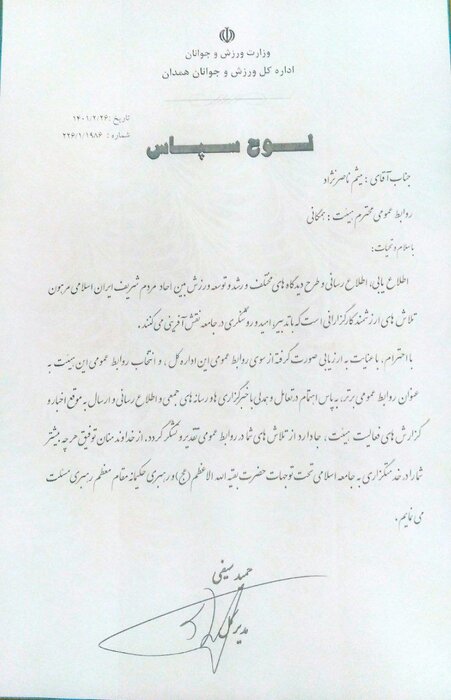 وزارت ورزش و جوانان
اداره کل ورزش و جوانان همدان
تاریخ :۱۴۰۱/۲/۲۶
شماره : ۲۲۶/۱/۱۹۸۶
لوح سپاس
جناب آقای : میثم ناصرنژاد
روابط عمومی محترم هیئت : همگانی
باسلام و تحیات:
اطلاع یابی، اطلاع رسانی و طرح دیدگاه های مختلف و رشد و توسعه ورزش بین احاد مردم شریف ایران اسلامی مرهون
تلاش های ارزشمند کارگزارانی است که با تدبیر، امید و روشنگری در جامعه نقش آفرینی می کنند.
با احترام، با عنایت به ارزیابی صورت گرفته از سوی روابط عمومی این اداره کل ، و انتخاب روابط عمومی این هیئت به
عنوان روابط عمومی برتر، به پاس اهتمام در تعامل و همدلی با خبرگزاری ها و رسانه های جمعی و اطلاع رسانی و ارسال به موقع اخبار و
گزارش های فعالیت هیئت ، جا دارد از تلاش های شما در روابط عمومی تقدیر و تشکر گردد. از خداوند منان توفیق هر چه بیشتر
شما را در خدمتگزاری به جامعه اسلامی تحت توجهات حضرت بقیه الله الاعظم (عج) و رهبری حکیمانه مقام معظم رهبری مسئلت
می نمایم.
حمید سیفی
مدیر کل